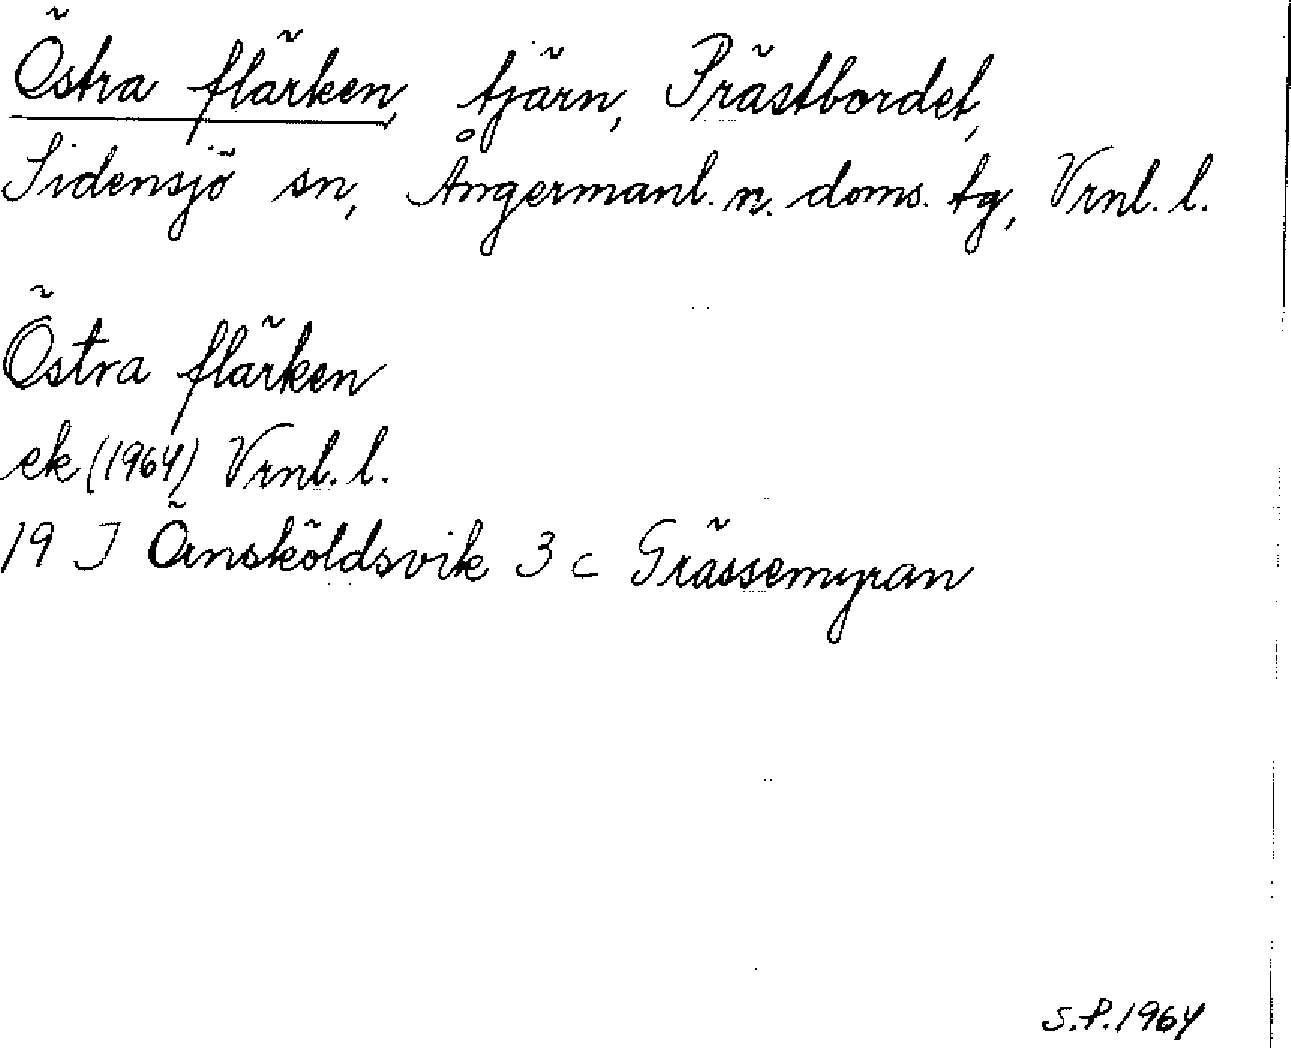 Östra flärken, tjärn, Prästbordet,
Sidensjö sn, Ångermanl. n. doms. tg, Vrnl. l.
Östra flärken
ek (1964) Vrnl. l.
19 J Örnsköldsvik 3 c Grässemyran
S.P. 1964